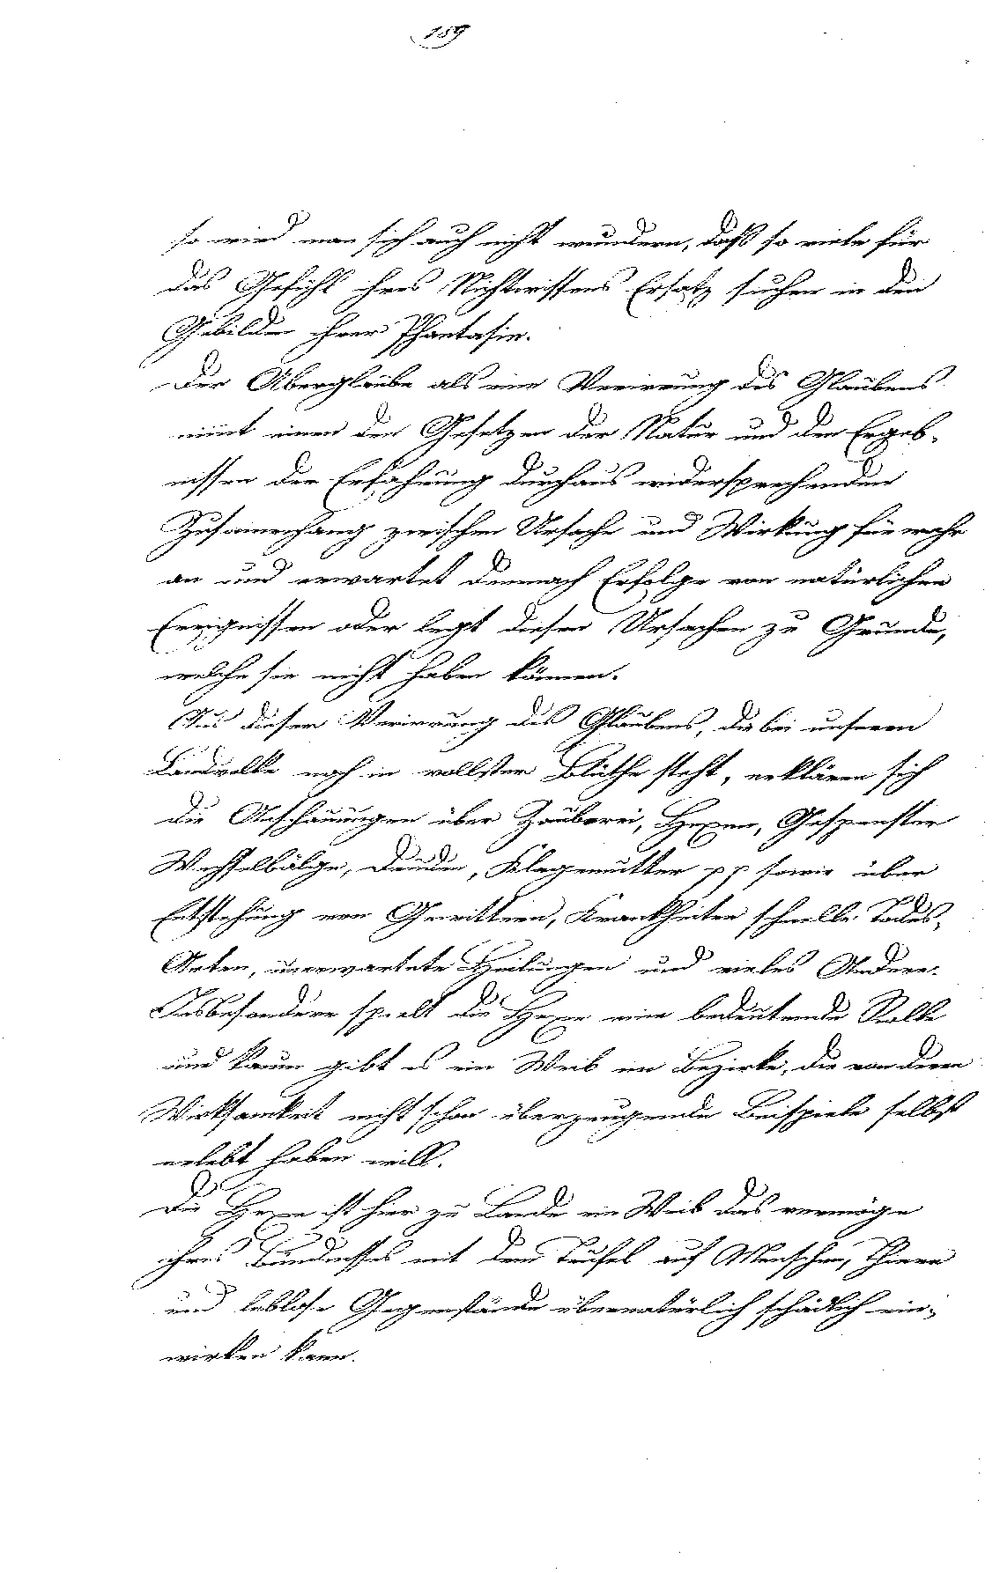 159
so wird man sich auch nicht wundern, daß so viele für
das Gefühl ihres Nichtwissens Ersatz suchen in den
Gebilden ihrer Phantasie.
Der Aberglaube als eine Verirrung des Glaubens
nimt einen den Gesetzen der Natur und den Ergeb-
nissen der Erfahrung durchaus widersprechenden
Zusamenhang zwischen Ursache und Wirkung für wahr
an und erwartet demnach Erfolge von natürlichen
Ereignissen oder legt diesen Ursachen zu Grunde,
welche sie nicht haben können.
Aus dieser Verirrung des Glaubens, die bei unserem
Landvolke noch in vollster Blüthe steht, erklären sich
die Anschauungen über Zauberei, Hexen, Gespenster
Wechselbälge, Druden, Klagemutter pp sowie über
Entstehung von Gewittern, Krankheiten schnelle Todes-
Arten, unerwartete Heilungen und vieles Andere.
Insbesondere spielt die Hexe eine bedeutende Rolle
und kaum gibt es ein Weib im Bezirke, die von deren
Wirksamkeit nicht schon überzeugende Beispiele selbst
erlebt haben will.
Die Hexe ist hier zu Lande ein Weib das vermöge
ihres Bündnisses mit dem Teufel auf Menschen, Thiere
und leblose Gegenstände übernatürlich schädlich ein-
wirken kann.